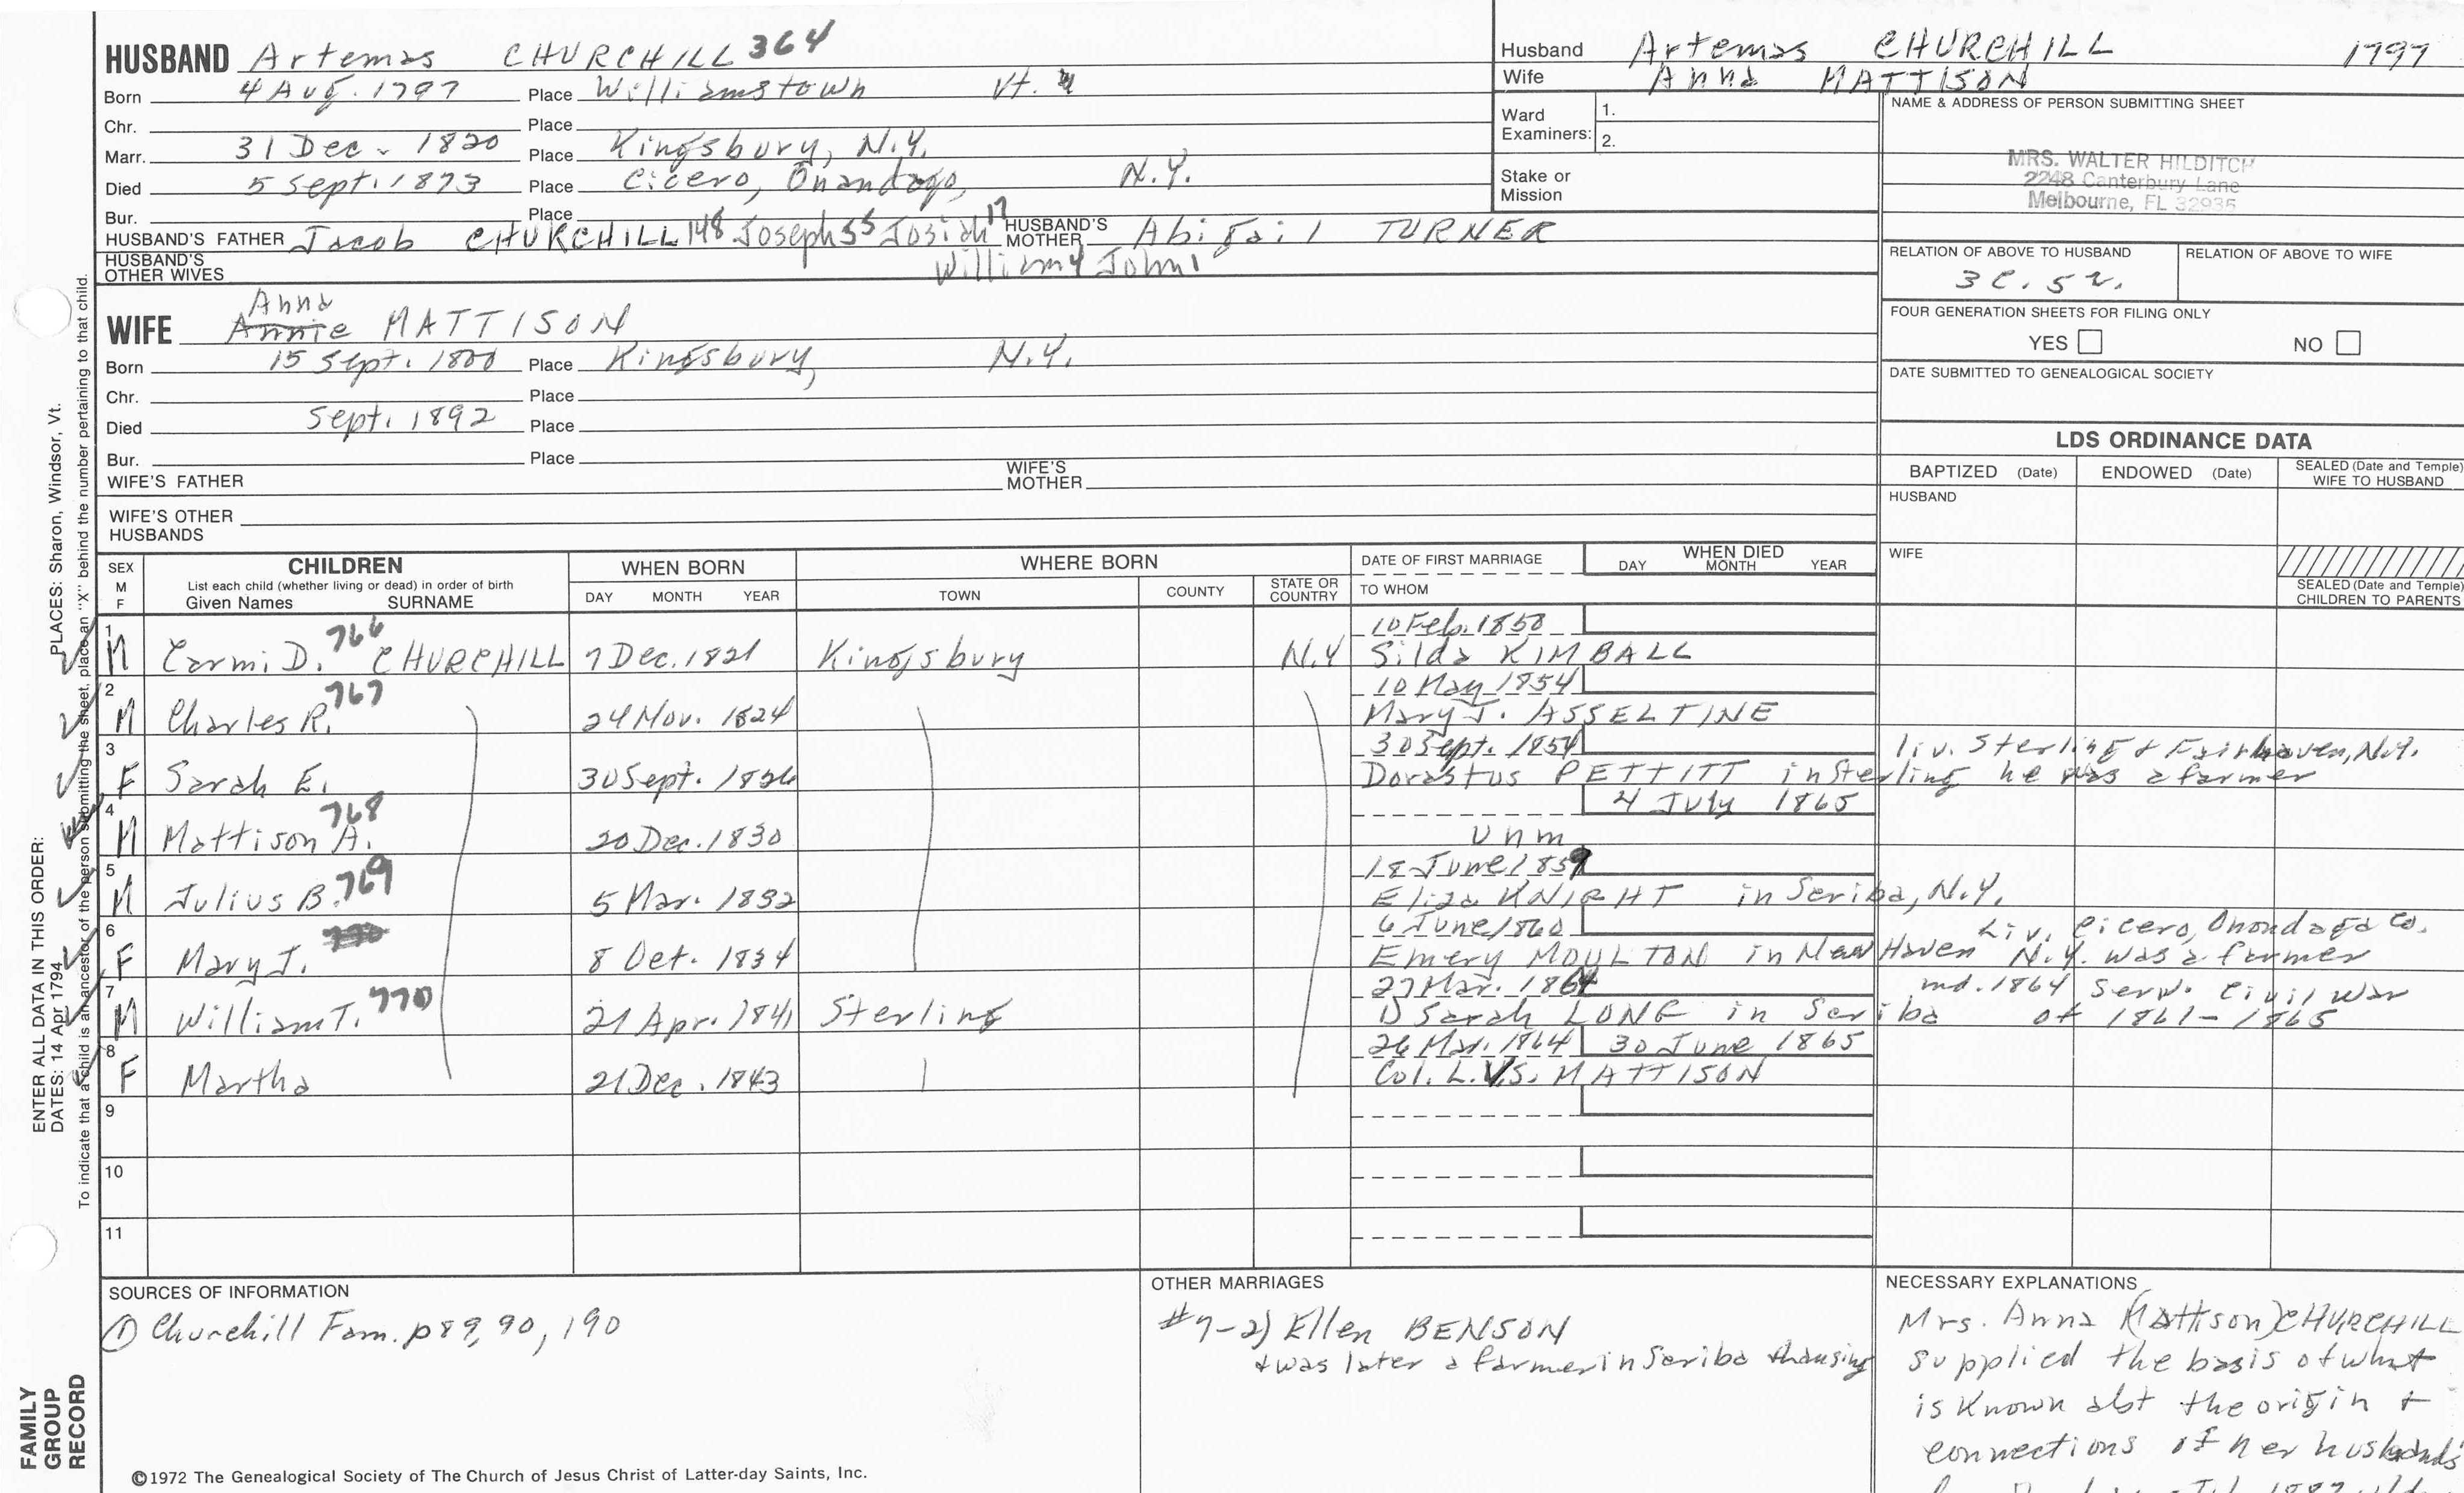 HUSBAND Artemas CHURCHILL 364
Born 4 Aug. 1797 Place Williamstown Vt.
Chr. Place
Marr. 31 Dec. 1820 Place Kingsbury, N.Y.
Died 5 Sept. 1873 Place Cicero, Onandaga, N.Y.
Bur. Place
HUSBAND'S FATHER Jacob CHURCHILL 148 Joseph 55 Josiah 17 HUSBAND'S MOTHER Abigail TURNER
HUSBAND'S OTHER WIVES William 4 John 1
Anna
WIFE Annie MATTISON
Born 15 Sept. 1800 Place Kingsbury, N.Y.
Chr. Place
Died Sept. 1892 Place
Bur. Place
WIFE'S FATHER WIFE'S MOTHER
WIFE'S OTHER HUSBANDS
Husband Artemas CHURCHILL 1797
Wife Anna MATTISON
Ward Examiners: 1.
2.
Stake or Mission
NAME & ADDRESS OF PERSON SUBMITTING SHEET
MRS. WALTER HILDITCH
2248 Canterbury Lane
Melbourne, FL 32935
RELATION OF ABOVE TO HUSBAND RELATION OF ABOVE TO WIFE
3C. 5r.
FOUR GENERATION SHEETS FOR FILING ONLY
YES NO
DATE SUBMITTED TO GENEALOGICAL SOCIETY
LDS ORDINANCE DATA
BAPTIZED (Date) ENDOWED (Date) SEALED (Date and Temple) WIFE TO HUSBAND
HUSBAND
WIFE
SEALED (Date and Temple) CHILDREN TO PARENTS
SEX M F
CHILDREN
List each child (whether living or dead) in order of birth
Given Names SURNAME
WHEN BORN
DAY MONTH YEAR
WHERE BORN
TOWN COUNTY STATE OR COUNTRY
DATE OF FIRST MARRIAGE
TO WHOM
WHEN DIED
DAY MONTH YEAR
10 Feb. 1850
1 M Carmi D. 766 CHURCHILL 7 Dec. 1821 Kingsbury N.Y Silda KIMBALL
10 May 1854
2 M Charles R. 767 24 Nov. 1824 Mary J. ASSELTINE
30 Sept. 1854 liv. Sterling & Fairhaven, N.Y.
3 F Sarah E. 30 Sept. 1826 Dorastus PETTITT in Sterling he was a farmer
4 July 1865
4 M Mattison A. 768 20 Dec. 1830 unm
18 June 1859
5 M Julius B. 769 5 Mar. 1832 Eliza KNIGHT in Scriba, N.Y.
6 June 1860 Liv. Cicero, Onondaga Co.
6 F Mary J. 770 8 Oct. 1834 Emery MOULTON in New Haven N.Y. was a farmer
27 Mar. 1864 md. 1864 Serv. Civil War
7 M William T. 770 21 Apr. 1841 Sterling 1) Sarah LONG in Scriba of 1861-1865
26 Mar. 1864 30 June 1865
8 F Martha 21 Dec. 1843 Col. L.V.S. MATTISON
9
10
11
SOURCES OF INFORMATION
① Churchill Fam. p89, 90, 190
OTHER MARRIAGES
#7-2) Ellen BENSON
& was later a farmer in Scriba
NECESSARY EXPLANATIONS
Mrs. Anna (Mattison) CHURCHILL
supplied the basis of what
is known abt the origin &
connections of her husband's
©1972 The Genealogical Society of The Church of Jesus Christ of Latter-day Saints, Inc.
ENTER ALL DATA IN THIS ORDER:
DATES: 14 Apr 1794 PLACES: Sharon, Windsor, Vt.
To indicate that a child is an ancestor of the person submitting the sheet, place an "X" behind the number pertaining to that child.
FAMILY
GROUP
RECORD